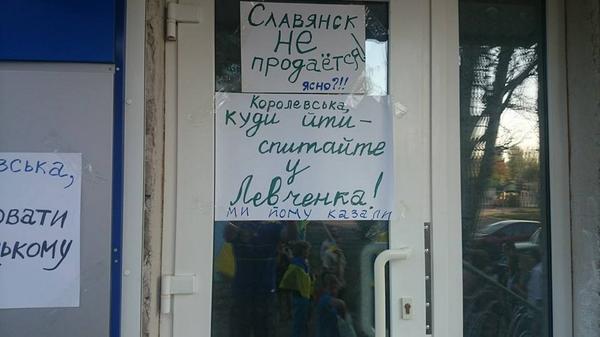 Славянск
не
продаётся!
ясно?!!
Королевська,
куди йти-
спитайте
у
Левченка!
ми йому казали
вська,
овати
ському